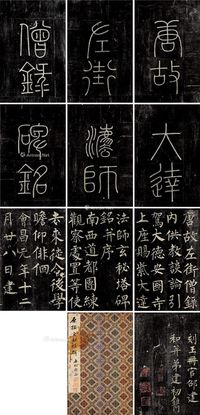 唐故
左街
僧録
大達
法師
碑銘
唐故左街僧錄
內供奉談論引
駕大德安國寺
上座賜紫大達
法師玄秘塔碑
銘并序
南西道都團練
觀察處置等使
去來徒令後學
瞻仰徘徊
會昌元年十二
月廿八日建
刻玉冊官邵建
和并弟建初鐫